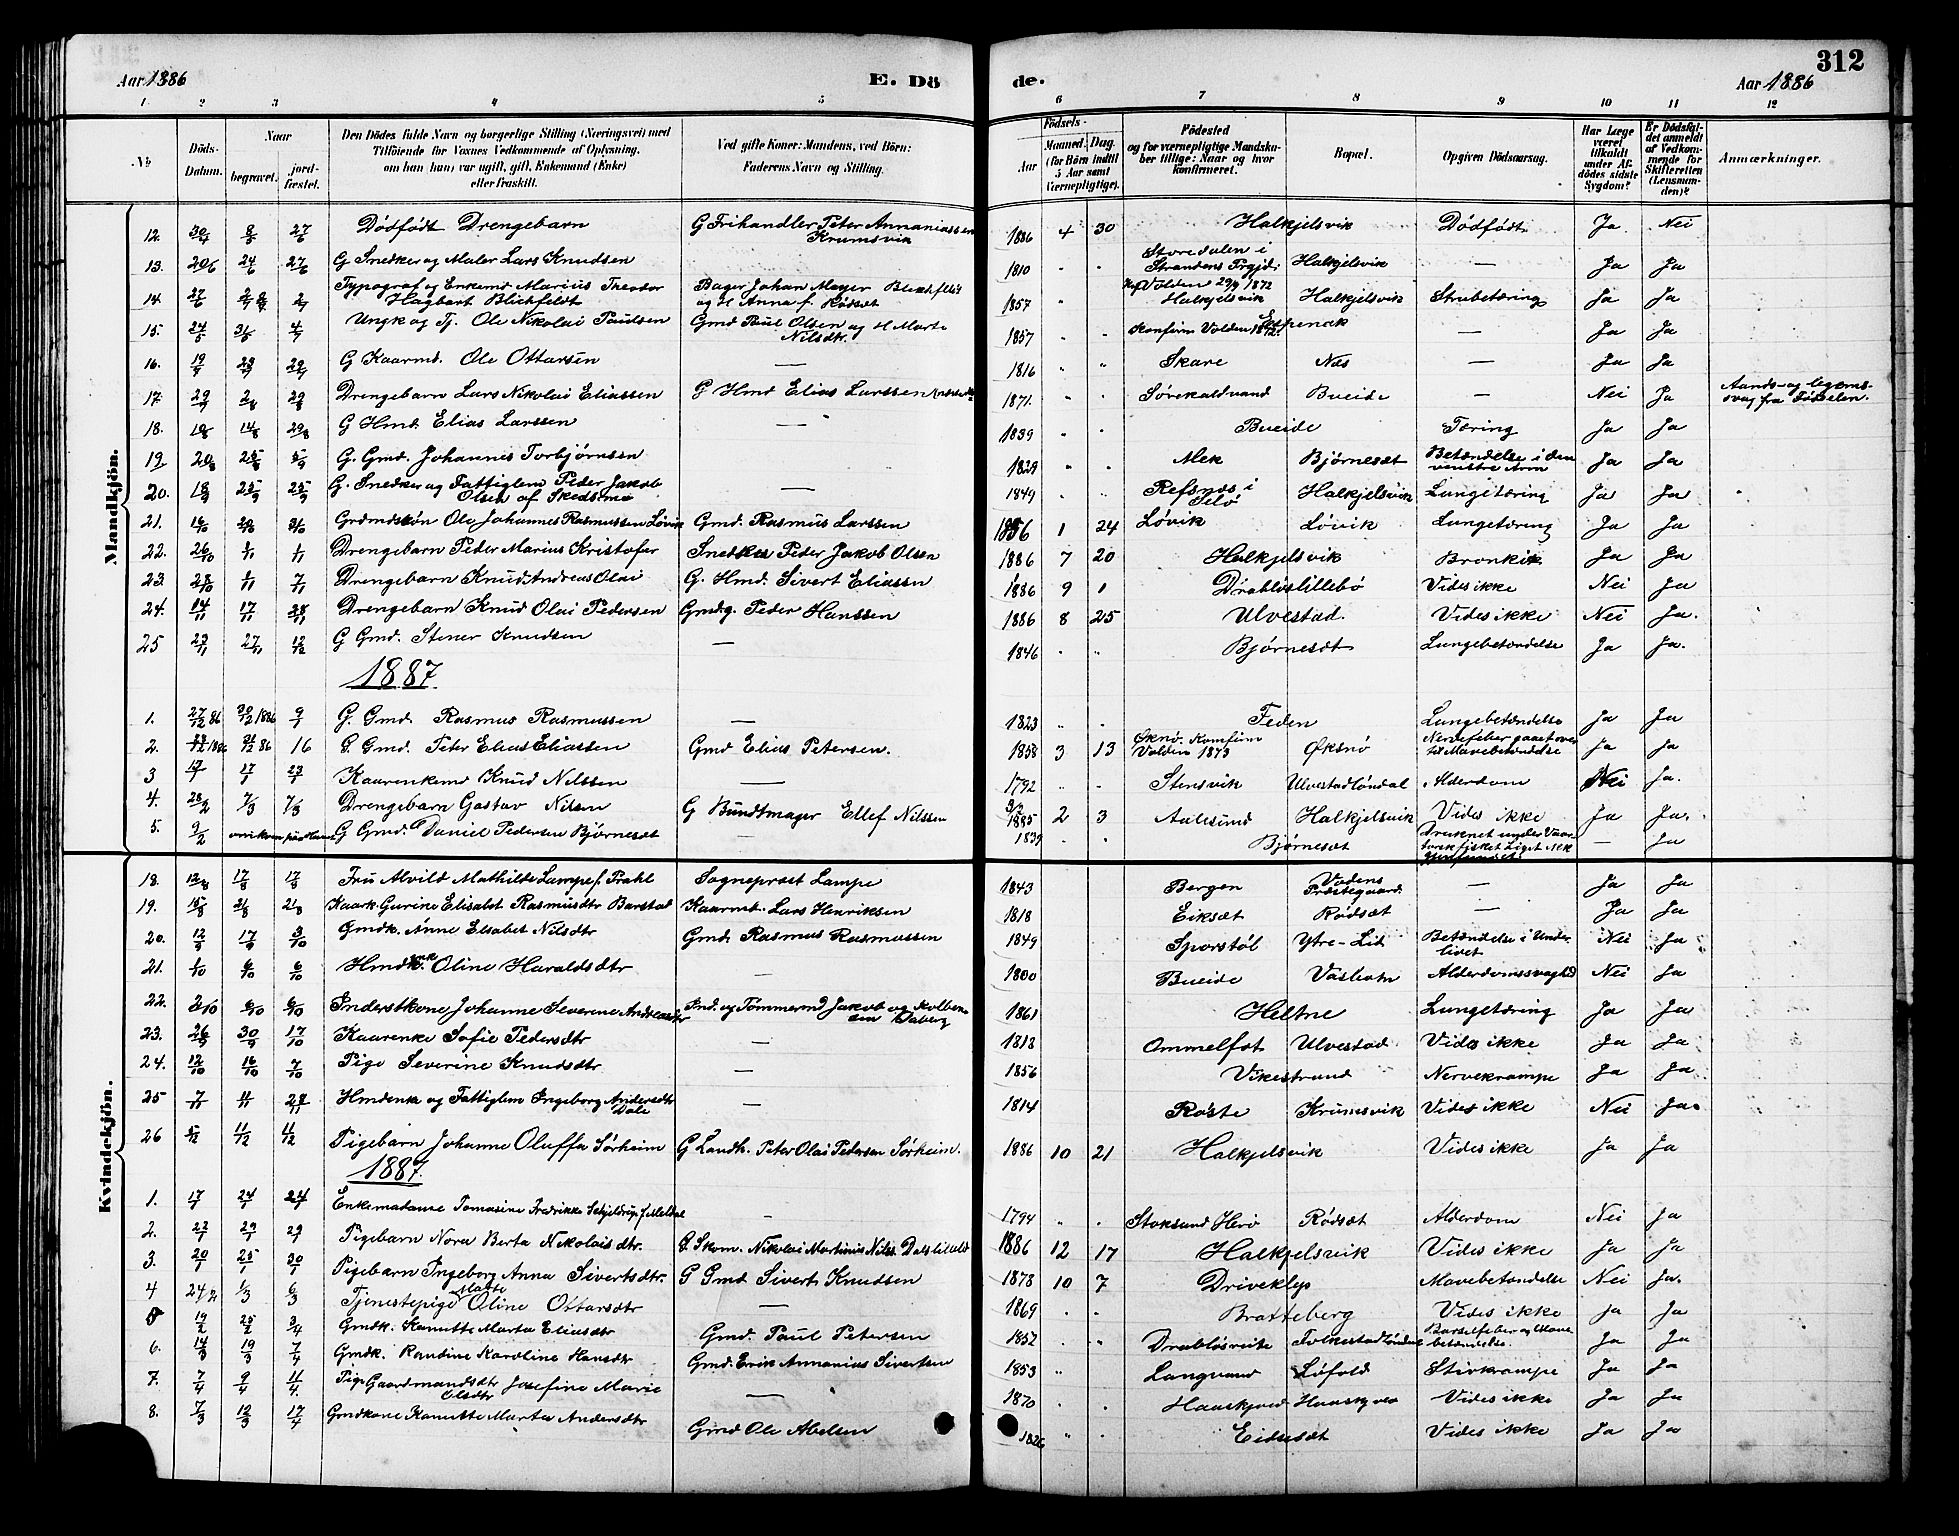 312
Aar 1886 E. Dö de. Aar 1886
1. 2 3 4 5 6 7 8 9 10 11 12
No Döds-Datum. Naar begravet. jord-fæstet. Den Dödes fulde Navn og borgerlige Stilling (Næringsvei) med Tilföiende for Voxnes Vedkommende af Oplysning, om han (hun) var ugift, gift, Enkemand (Enke) eller fraskilt. Ved gifte Koner: Mandens, ved Börn: Faderens Navn og Stilling. Födsels- Aar Maaned. Dag. (for Börn indtil 5 Aar samt Værnepligtige). Födested og for værnepligtige Mandska-ber tillige: Naar og hvor konfirmeret. Bopæl. Opgiven Dödsaarsag. Har Læge været tilkaldt under Af-dödes sidste Sygdom? Er Dödsfal-det anmeldt af Vedkom-mende for Skifteretten (Lensman-den)? Anmærkninger.
Mandkjön.
12. 30/4 8/5 27/6 Dødfødt Drengebarn G Frihandler Peter Annaniassen Krumsvik 1886 4 30 Halkjelsvik Dødfødt Ja Nei
13. 20/6 24/6 27/6 G Snedker og Maler Lars Knudsen 1810 " " Storedalen i Strandens Prgjd. Halkjelsvik — Ja Ja
14 27/6 2/7 Typograf og Enkemd Marius Theodor Hagbart Blichfeldt Bager Johan Meyer Blichfeldt og H Anna f. Rødset 1857 " kf Volden 29/9 1872 Halkjelsvik Halkjelsvik Strubetæring Ja Ja
15. 24/5 31/5 4/7 Ungk og Tj. Ole Nikolai Paulsen Gmd Paul Olsen og H Marte Nilsdtr. 1857 " " Konfirm Volden 1872. Espenak — Ja Ja
16. 19/7 23/7 29/7 G Kaarmd. Ole Ottarsen — 1816 " " Skare Næs — Ja Ja
17. 29/7 2/8 29/8 Drengebarn Lars Nikolai Eliassen G Hmd Elias Larssen 1871. " " Sørekaldvand Bueide — Nei Ja Aands- og legems-svag fra Fødselen.
18. 10/8 14/8 29/8 G Hmd. Elias Larssen — 1839 " " Bueide Tæring Ja Ja
19. 20/8 25/8 5/9 G. Gmd. Johannis Torbjørnsen — 1829 " " Alek Bjørnesæt Betændelse i den venstre Arm Ja Ja
20. 18/9 25/9 25/9 G. Snedker og Fattiglem Peder Jakob Olsen af Skedsmo — 1849 " " Refsnæs i Selø Halkjelsvik Lungetæring Ja Ja
21. 16/10 20/10 31/10 Grdmdsøn Ole Johannes Rasmussen Løvik Gmd. Rasmus Larssen 1856 1 24 Løvik Løvik Lungetæring Ja Ja
22. 26/10 1/11 1/11 Drengebarn Peder Marius Kristofer Snedker Peder Jakob Olsen 1886 7 20 Halkjelsvik Bronkit Ja Ja
23. 28/10 1/11 7/11 Drengebarn Knud Andreas Olai G. Hmd. Sivert Eliassen 1886 9 1 Drabløslillebø Vides ikke Nei Ja
24. 14/11 17/11 28/11 Drengebarn Knud Olai Pedersen Gmdg. Peder Hanssen 1886 8 25 Ulvestad. Vides ikke Nei Ja.
25 23/11 27/11 12/12 G Gmd. Stener Knudsen — 1846 " " Bjørnesæt Lungebetændelse Ja Ja.
1887
1. 27/12 86 30/12 1886 9/1 G. Gmd. Rasmus Rasmussen — 1823 " " Feden Lungebetændelse Ja Ja
2. 1886 31/12 86 16 G Gmd. Peter Elias Eliassen Gmd Elias Petersen. 1858 3 13 Øksnø. Konfirm Volden 1873 Øksnø Nervefeber gaaet over til Mavebetændelse Ja Ja
3 12/1 17/1 23/1 Kaarenkemd Knud Nilssen — 1792 " " Stensvik Ulvestadløndal Alderdom Nei Ja.
4. 28/2 7/3 7/3 Drengebarn Gustav Nilsen G Bundtmager Ellef Nilssen 1885 2 3 Aalesund Halkjelsvik Vides ikke Ja Ja.
5. 9/2 G Gmd. Daniel Pedersen Bjørnesæt — 1839 " " Bjørnesæt Druknet under Vaar-torskfisket Liget ikke Ja
Kvindekjön.
18. 12/8 17/8 17/8 Fru Alvild Mathilde Lampe f. Prahl Sognepræst Lampe 1843 Bergen Voldens Præstegaard — Ja Ja
19. 15/8 21/8 21/8 Kaark. Gurine Elisabet Rasmusdtr Barstad Kaarmd. Lars Henriksen 1818 Eiksæt Rødsæt — Ja Ja
20. 12/9 17/9 3/10 Gmdk. Anne Elsabet Nilsdtr Gmd. Rasmus Rasmussen 1849 Sporstøl Ytre-Lid Betændelse i Under-livet Nei Ja
21. 1/10 6/10 6/10 Hmdenk. Oline Haraldsdtr — 1800 Bueide Vasbotn Alderdomssvaghed Nei Ja
22. 2/10 6/10 6/10 Inderstkone Johanne Severine Andreasdtr Ind. og Tømmermd Jakob 1861 Heltne Lungetæring Ja Ja
23. 26/9 30/9 17/10 Kaarenke Sofie Pedersdtr — 1818 Ommelfot Ulvestad Vides ikke Ja Ja
24. 12/10 16/10 7/10 Pige Severine Knudsdtr — 1856 Vikestrand Nervekrampe Ja Ja
25 7/11 11/11 28/11 Hmdenk og Fattiglem Ingeborg Andersdtr Dale — 1814 Røste Krumsvik Vides ikke Nei Ja.
26 5/12 11/12 11/12 Pigebarn Johanne Oluffa Sørheim G Landh. Peter Olai Pedersen Sørheim. 1886 10 21 Halkjelsvik Vides ikke Ja Ja
1887.
1. 17/1 24/1 24/1 Enkemadame Tomasine Fredrikke Schjeldrup f. Meldal — 1794 " " Stoksund Herø Rødsæt Alderdom Nei Ja
2. 22/1 29/1 29/1 Pigebarn Nora Berta Nikolaisdtr. G. Skom. Nikolai Martinus Nils. 1886 12 17 Halkjelsvik Vides ikke Ja Ja
3. 20/1 25/1 30/1 Pigebarn Ingeborg Anna Sivertsdtr. G Gmd Sivert Knudsen 1878 10 7 Driveklep Mavebetændelse Nei Ja.
4 24/2 1/3 6/3 Tjenestepige Marte Oline Ottarsdtr — 1869 " " Bratteberg Vides ikke Ja Ja
5 19/2 25/2 3/4 Gmdk. Kanutte Marta Eliasdtr Gmd. Paul Petersen 1852 " " Drabløsveite Folkestadløndal Barselfeber og Mave-betændelse. Ja Ja
6. 14/3 19/3 7/4 Gmdk. Randine Karoline Hansdtr Gmd. Erik Annanias Sivertsen 1853 " Langvand Løfold Stivkrampe Ja Ja
7. 7/4 9/4 11/4. Pige Gaardmandsdtr Josefine Marie Olsdtr — 1870 " " Haaskjred Vides ikke Ja Ja
8. 7/3 12/3 17/4 Gmdkone Kanutte Marta Andersdtr Gmd Ole Abelsen 1826 " " Eidsæt Vides ikke Ja Ja